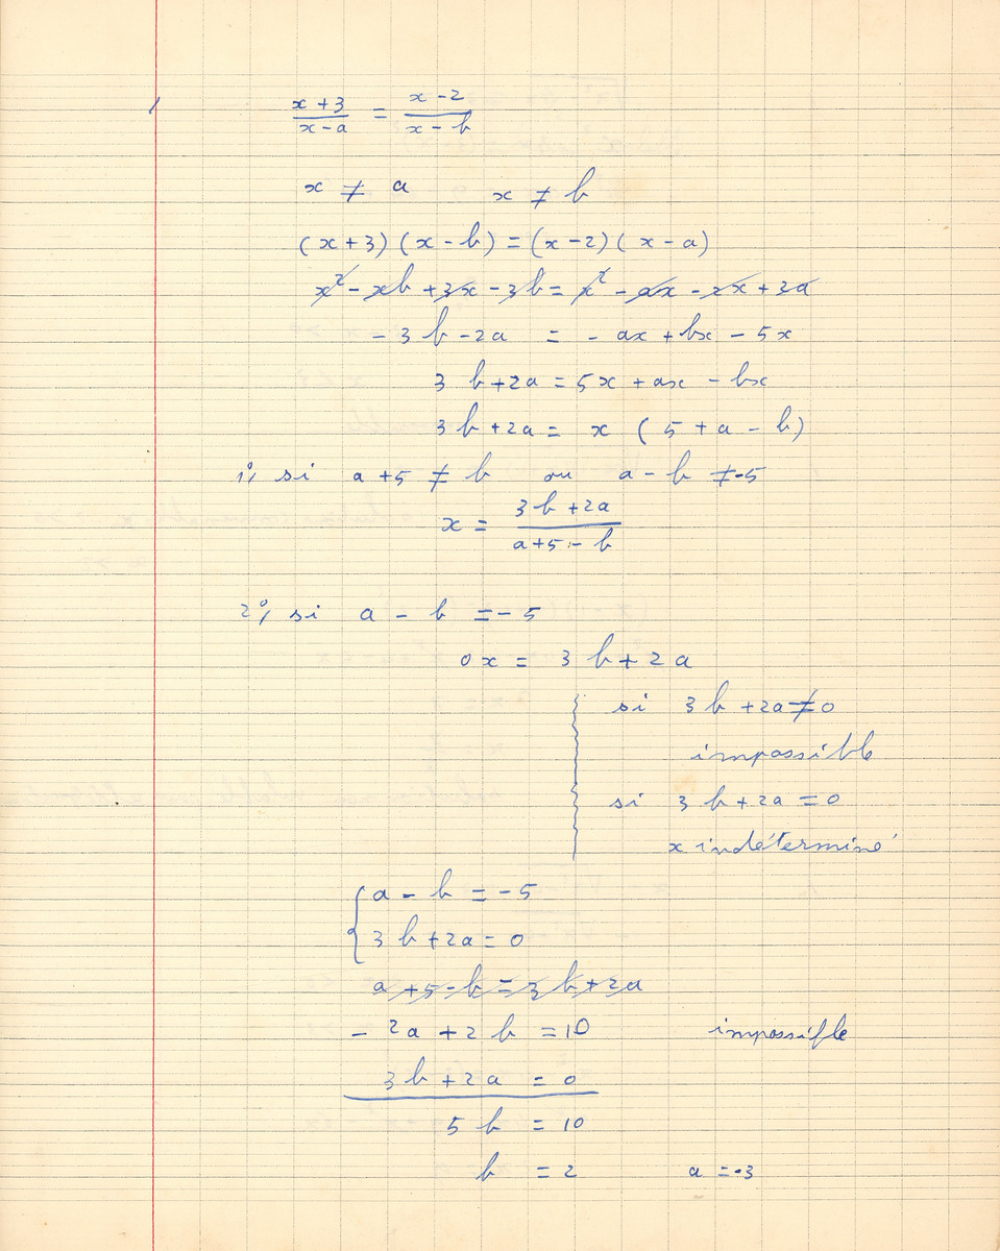 1/ (x+3)/(x-a) = (x-2)/(x-b)
x ≠ a x ≠ b
(x+3)(x-b)=(x-2)(x-a)
x²-xb+3x-3b=x²-ax-2x+2a
-3b-2a = -ax+bx-5x
3b+2a=5x+ax-bx
3b+2a= x (5+a-b)
1°/ si a+5 ≠ b ou a-b ≠-5
x = (3b+2a)/(a+5-b)
2°/ si a - b =-5
0x = 3b+2a
si 3b+2a≠0
impossible
si 3b+2a=0
x indéterminé
{a-b=-5
{3b+2a=0
a+5-b=3b+2a
-2a+2b=10 impossible
3b+2a=0
5b = 10
b = 2 a =-3